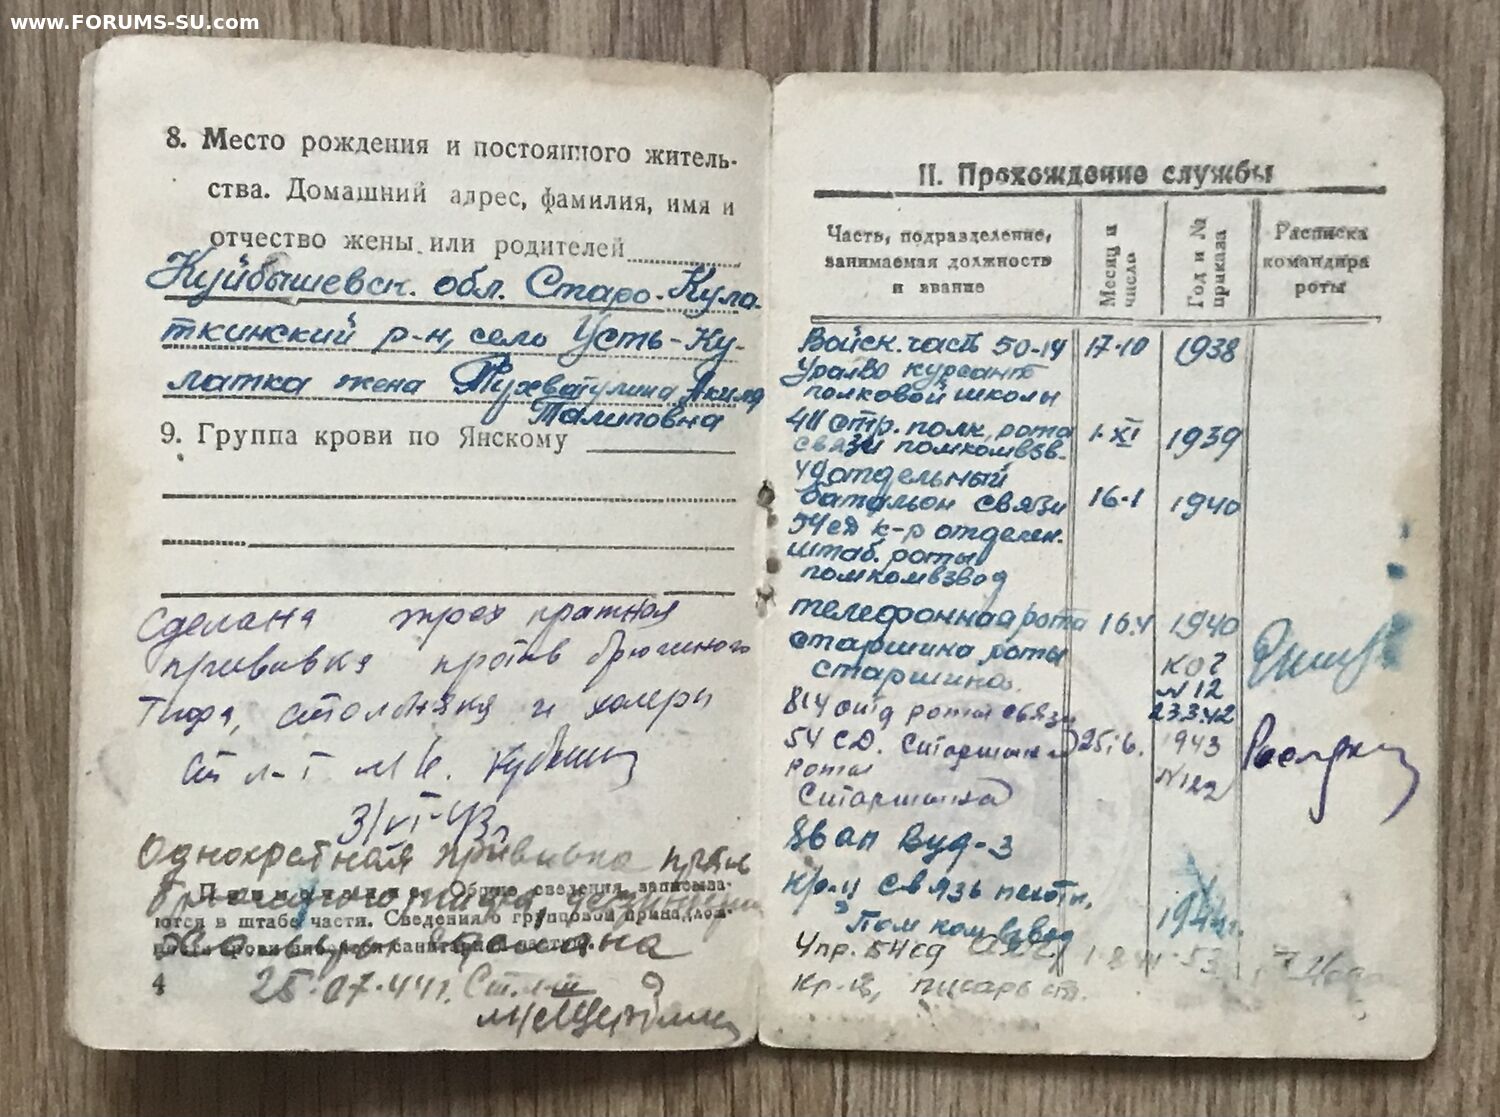 www.FORUMS-SU.com
8. Место рождения и постоянного житель-
ства. Домашний адрес, фамилия, имя и
отчество жены или родителей
Куйбышевск. обл. Старо-Кула-
ткинский р-н, село Усть-Ку-
латка жена Тухватулина Акиля
Талиповна
9. Группа крови по Янскому
Сделана трех кратная
прививка против брюшного
Тифа, столбняка и холеры
31/VI-43г
Однократная прививка против
Примечание. Общие сведения записыва-
брюшного тифа, дезинтерии
ются в штабе части. Сведения о групповой принадлеж-
санитарной частью.
4
25.07.44г. Ст. л-т
м/с
II. Прохождение службы
Часть, подразделение,
занимаемая должность
и звание
Месяц и
число
Год и №
приказа
Расписка
командира
роты
Войск. часть 50-14 17-10 1938
УралВо курсант
полковой школы
411 стр. полк, рота 1-XI 1939
связи помкомвзв.
отдельный
батальон связи 16-1 1940
54сд к-р отделен.
штаб. роты
помкомвзвод
телефонная рота 16.4 1940
старшина роты
старшина
№12
23.3.42
814 отд рота связи
54 СД. Старшина 25.6. 1943
роты
№122
Старшина
кр-ц связь пехоты,
Пом ком взвод
Упр. 54сд
кр-ц, писарь ст.